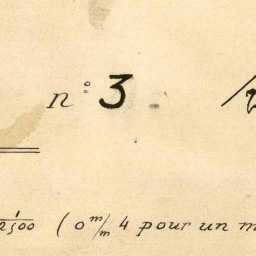 n° 3
1/2500 (0 m/m 4 pour un m